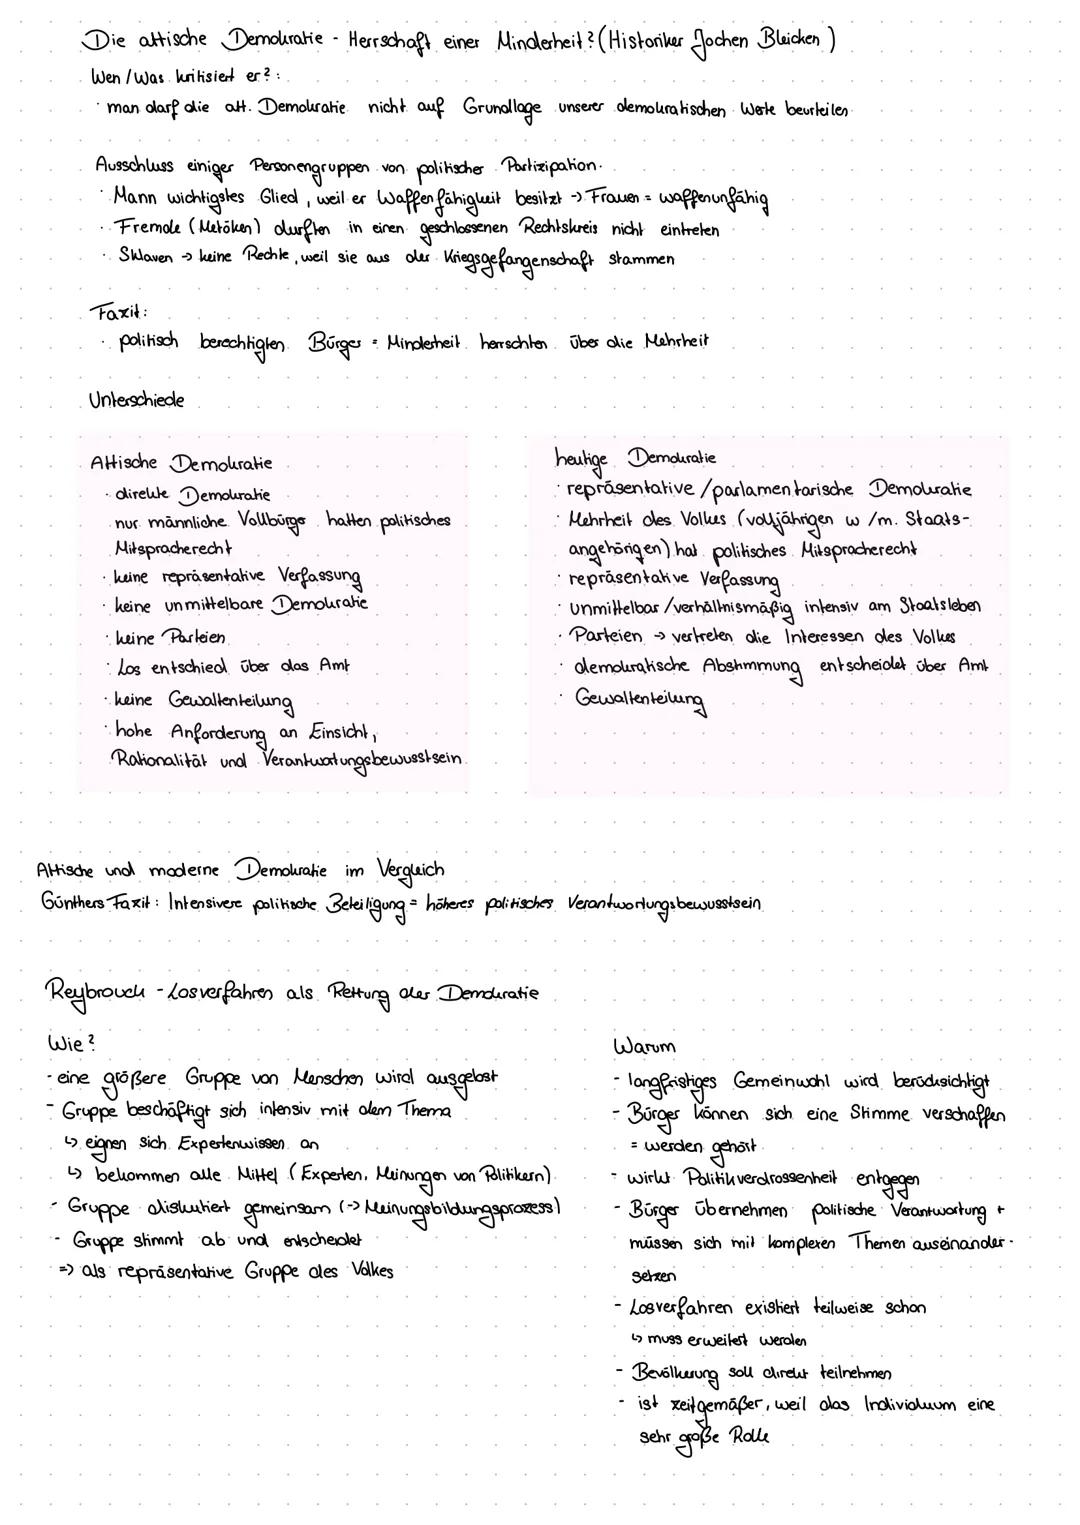 Die attische Demokratie - Herrschaft einer Minderheit? (Historiker Jochen Bleicken)
Wen / Was kritisiert er?:
· man darf die att. Demokratie nicht auf Grundlage unserer demokratischen Werte beurteilen
Ausschluss einiger Personengruppen von politischer Partizipation.
· Mann wichtigstes Glied, weil er Waffenfähigkeit besitzt -> Frauen = waffenunfähig
· Fremde (Metöken) durften in einen geschlossenen Rechtskreis nicht eintreten
· Sklaven -> keine Rechte, weil sie aus der Kriegsgefangenschaft stammen
Fazit:
· politisch berechtigten Bürger = Minderheit herrschten über die Mehrheit
Unterschiede
Attische Demokratie
· direkte Demokratie
nur männliche Vollbürger hatten politisches
Mitspracherecht
· keine repräsentative Verfassung
· keine unmittelbare Demokratie
· keine Parteien
· Los entschied über das Amt
· keine Gewaltenteilung
· hohe Anforderung an Einsicht,
Rationalität und Verantwortungsbewusstsein
heutige Demokratie
· repräsentative / parlamentarische Demokratie
· Mehrheit des Volkes (volljährigen w / m. Staats-
angehörigen) hat politisches Mitspracherecht
· repräsentative Verfassung
· unmittelbar / verhältnismäßig intensiv am Staatsleben
· Parteien -> vertreten die Interessen des Volkes
· demokratische Abstimmung entscheidet über Amt
· Gewaltenteilung
Attische und moderne Demokratie im Vergleich
Günthers Fazit: Intensivere politische Beteiligung = höheres politisches Verantwortungsbewusstsein
Reybrouck - Losverfahren als Rettung der Demokratie
Wie?
- eine größere Gruppe von Menschen wird ausgelost
- Gruppe beschäftigt sich intensiv mit dem Thema
↳ eignen sich Expertenwissen an
↳ bekommen alle Mittel (Experten, Meinungen von Politikern)
- Gruppe diskutiert gemeinsam (-> Meinungsbildungsprozess)
- Gruppe stimmt ab und entscheidet
=> als repräsentative Gruppe des Volkes
Warum
- langfristiges Gemeinwohl wird berücksichtigt
- Bürger können sich eine Stimme verschaffen
= werden gehört
- wirkt Politikverdrossenheit entgegen
- Bürger übernehmen politische Verantwortung +
müssen sich mit komplexen Themen auseinander-
setzen
- Losverfahren existiert teilweise schon
↳ muss erweitert werden
- Bevölkerung soll direkt teilnehmen
- ist zeitgemäßer, weil das Individuum eine
sehr große Rolle